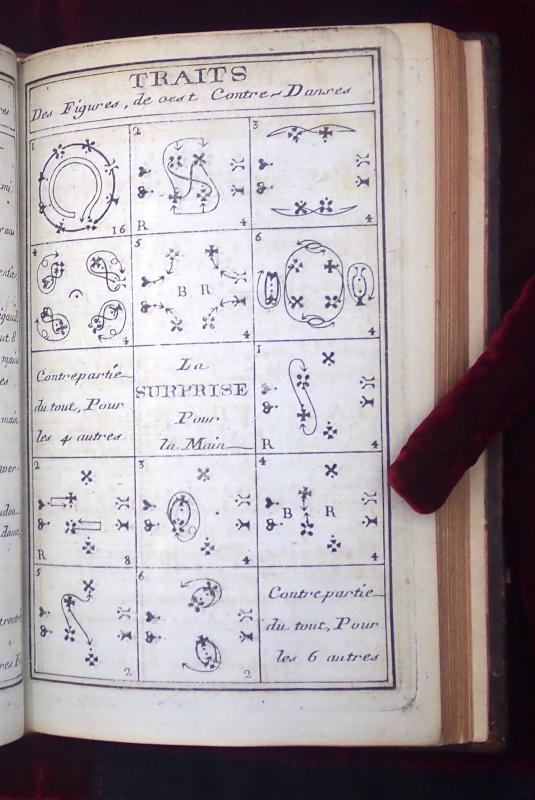 TRAITS
Des Figures, de cest Contre-Danses
1
16
2
R
4
3
4
4
4
5
B R
6
4
Contrepartie
du tout, Pour
les 4 autres
La
SURPRISE
Pour
la Main
1
R
4
2
R
8
3
4
4
B R
4
5
2
6
2
Contrepartie
du tout, Pour
les 6 autres